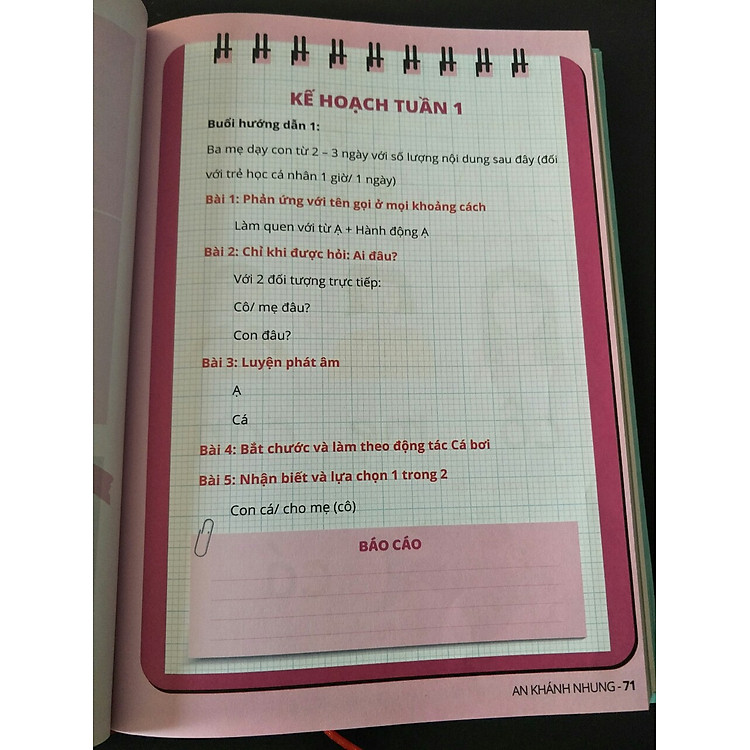 KẾ HOẠCH TUẦN 1
Buổi hướng dẫn 1:
Ba mẹ dạy con từ 2 – 3 ngày với số lượng nội dung sau đây (đối
với trẻ học cá nhân 1 giờ/ 1 ngày)
Bài 1: Phản ứng với tên gọi ở mọi khoảng cách
Làm quen với từ Ạ + Hành động Ạ
Bài 2: Chỉ khi được hỏi: Ai đâu?
Với 2 đối tượng trực tiếp:
Cô/ mẹ đâu?
Con đâu?
Bài 3: Luyện phát âm
Ạ
Cá
Bài 4: Bắt chước và làm theo động tác Cá bơi
Bài 5: Nhận biết và lựa chọn 1 trong 2
Con cá/ cho mẹ (cô)
BÁO CÁO
AN KHÁNH NHUNG - 71